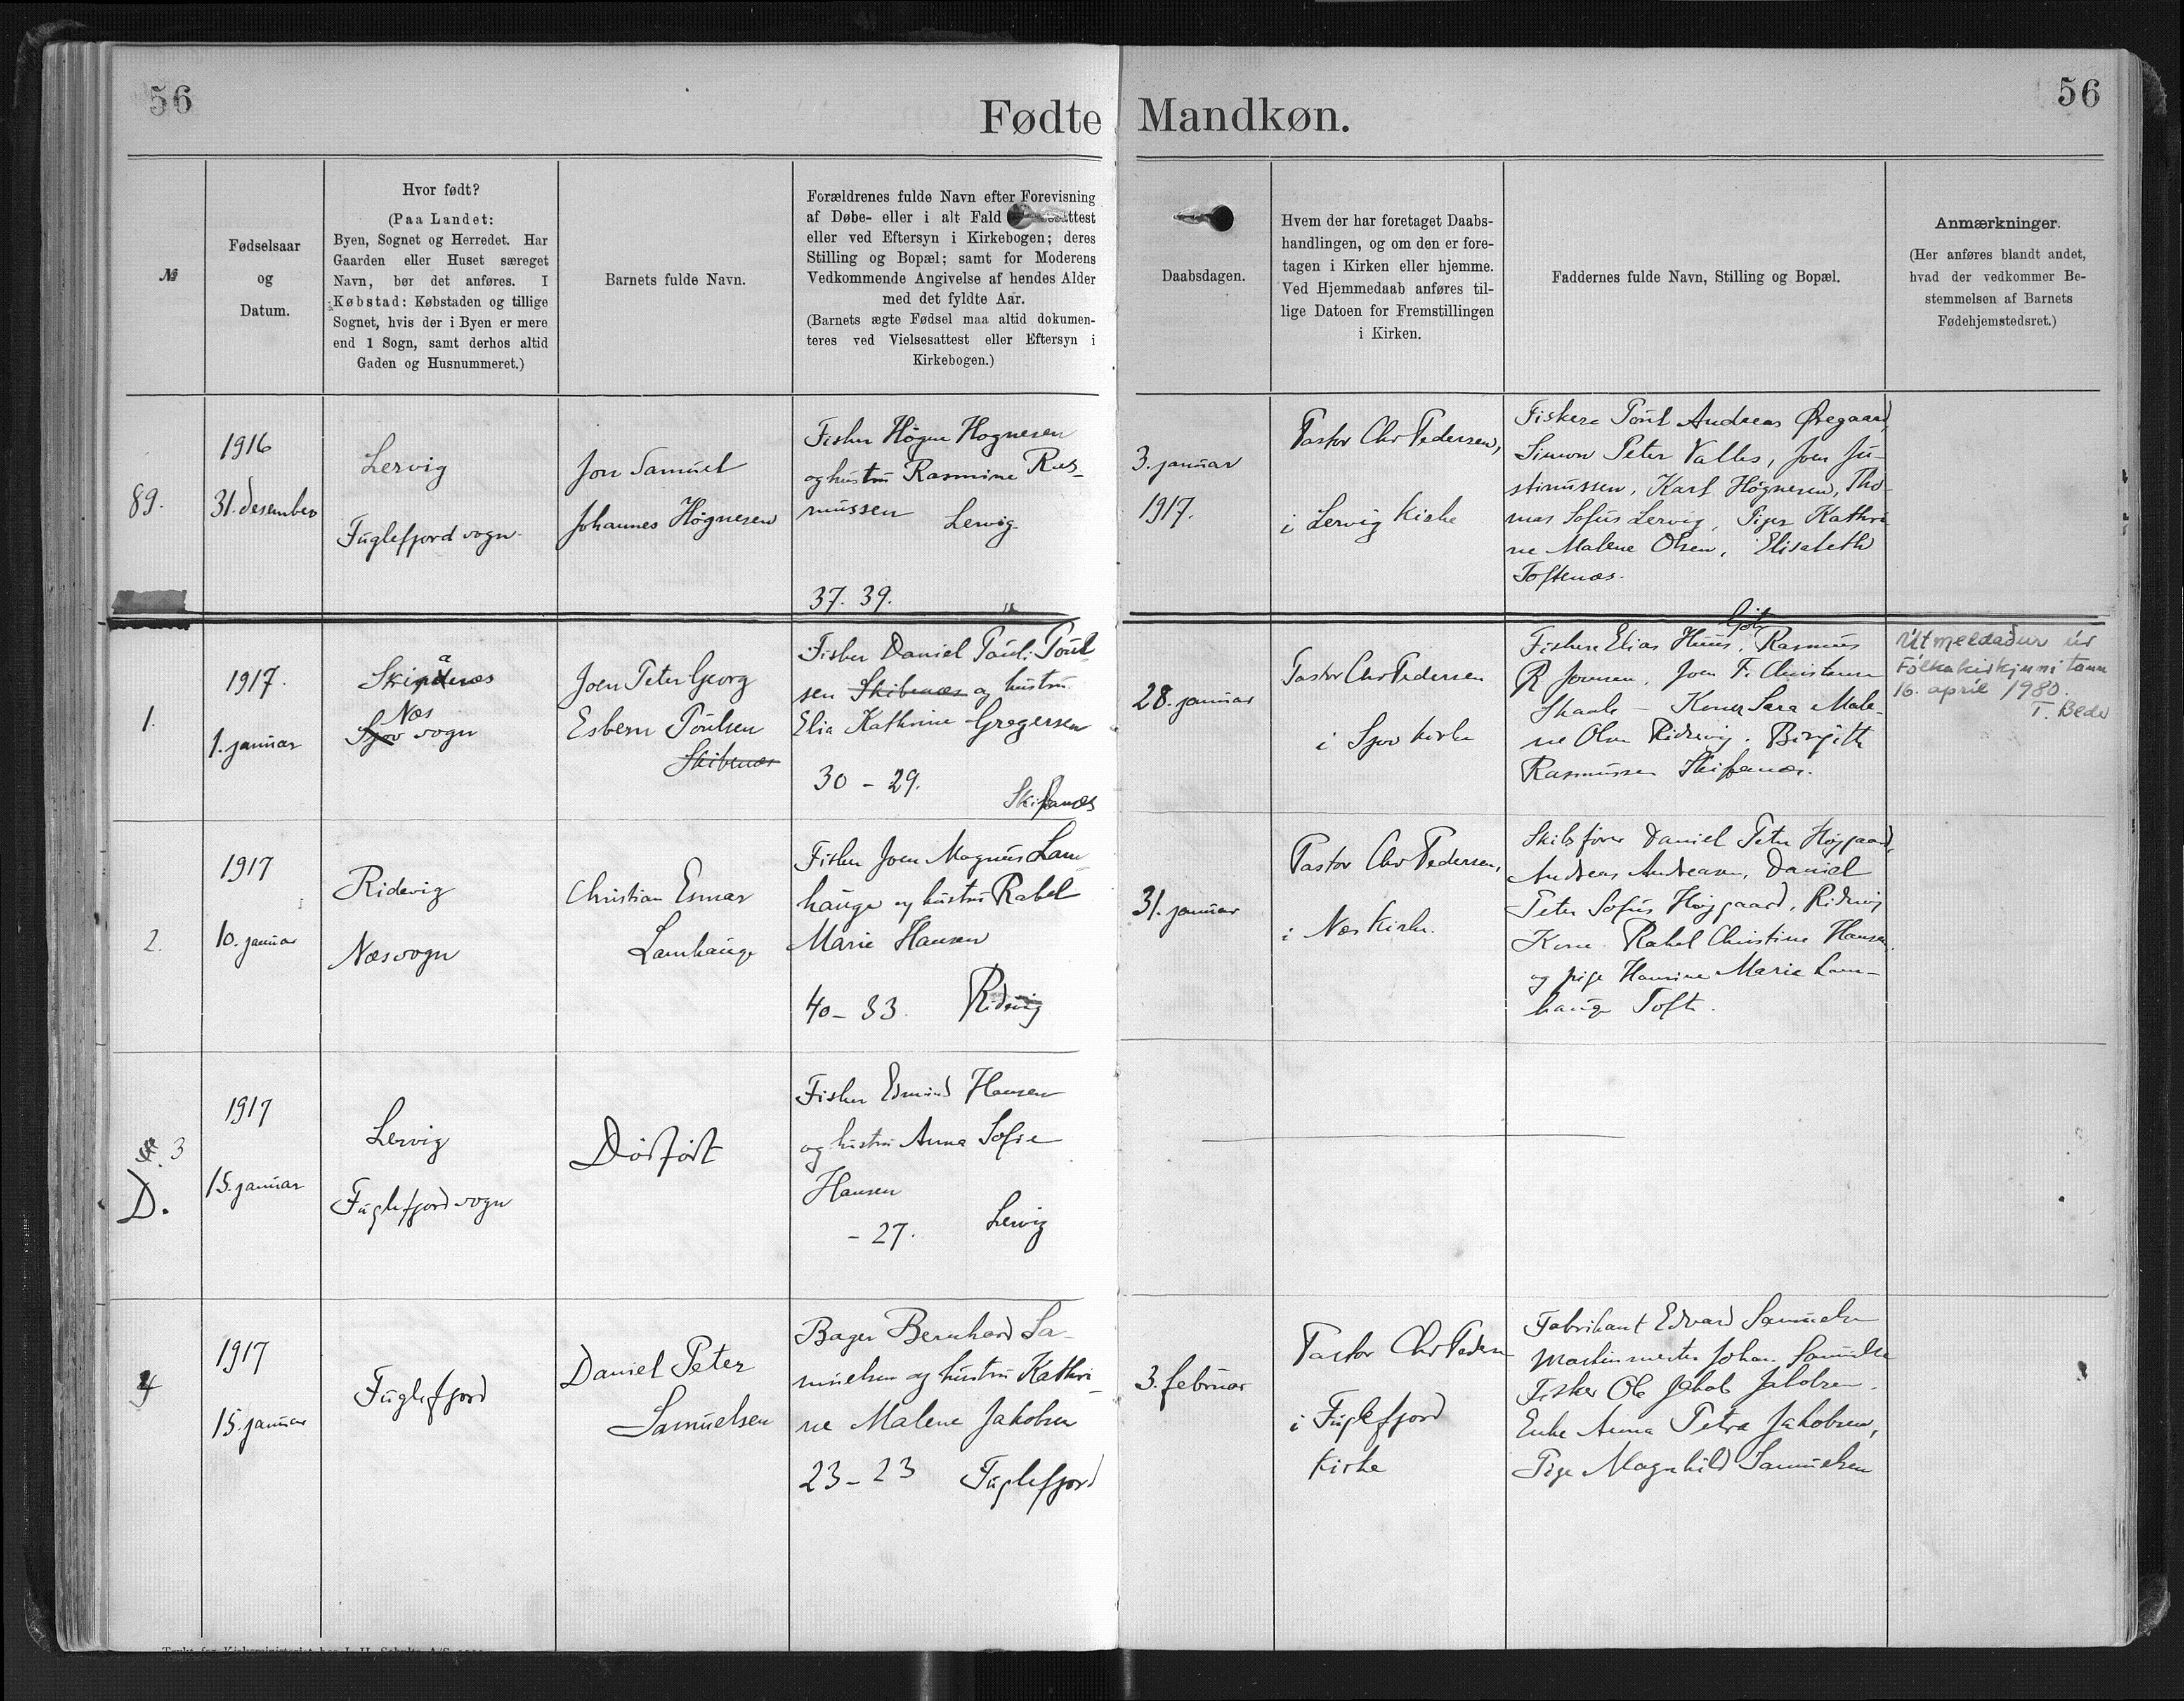 56
56
Fødte Mandkøn.
№
Fødselsaar
og
Datum.
Hvor født?
(Paa Landet:
Byen, Sognet og Herredet. Har
Gaarden eller Huset særeget
Navn, bør det anføres. I
Købstad: Købstaden og tillige
Sognet, hvis der i Byen er mere
end 1 Sogn, samt derhos altid
Gaden og Husnummeret.)
Barnets fulde Navn.
Forældrenes fulde Navn efter Forevisning
af Døbe- eller i alt Fald
eller ved Eftersyn i Kirkebogen; deres
Stilling og Bopæl; samt for Moderens
Vedkommende Angivelse af hendes Alder
med det fyldte Aar.
(Barnets ægte Fødsel maa altid dokumen-
teres ved Vielsesattest eller Eftersyn i
Kirkebogen.)
Daabsdagen.
Hvem der har foretaget Daabs-
handlingen, og om den er fore-
tagen i Kirken eller hjemme.
Ved Hjemmedaab anføres til-
lige Datoen for Fremstillingen
i Kirken.
Faddernes fulde Navn, Stilling og Bopæl.
Anmærkninger.
(Her anføres blandt andet,
hvad der vedkommer Be-
stemmelsen af Barnets
Fødehjemstedsret.)
89.
1916
31. desember
Lervig
Fuglefjord sogn.
Jon Samuel
Johannes Høgnesen
Fisker Høgne Hognesen
og hustru Rasmine Ras-
mussen
Lervig
37. 39.
3. januar
1917.
Pastor Chr Pedersen,
i Lervig Kirke
Fiskere Poul Andreas Øregaard,
Simon Peter Valles, Joen Ju-
stinussen, Karl Høgnesen, Tho-
mas Sofus Lervig, Piger Kathri
ne Malene Olsen, Elisabeth
Toftenæs.
1.
1917.
1. januar
Næs
Sjov sogn
Joen Peter Georg
Esbern Poulsen
Skibenæs
Fisker Daniel Pauli Poul
sen Skibenæs og hustru
Elia Kathrine Gregersen
30 - 29.
Skipanæs
28. januar
Pastor Chr Pedersen
i Sjov kirke
Fiskere Elias Huus, Rasmus
Göte
R Joensen, Joen F. Christiansen
Skaale - Koner Sara Male-
ne Olsen Ridevig. Birgitte
Rasmussen Skipanæs.
Útmeldaður úr
Fólkakirkjuni tann
16. apríl 1980.
2.
1917
10. januar
Ridevig
Næs sogn
Christian Esmar
Lamhauge
Fisker Joen Magnus Lam
hauge og hustru Rakel
Marie Hansen
40 - 33. Ridevig
31. januar
Pastor Chr Pedersen,
i Næs Kirke.
Skibsfører Daniel Peter Højgaard,
Andreas Andreasen, Daniel
Peter Sofus Højgaard, Ridevig
Kone Rakel Christine Hansen.
og pige Hansine Marie Lam-
hauge Toft.
3
D.
1917
15. januar
Lervig
Fuglefjord sogn
Dødfødt
Fisker Edmund Hansen
og hustru Anna Sofie
Hansen
- 27. Lervig
4
1917
15. januar
Fuglefjord
Daniel Peter
Samuelsen
Bager Bernhard Sa-
muelsen og hustru Kathri-
ne Malene Jakobsen
23 - 23 Fuglefjord
3. februar
Pastor Chr Pedersen
i Fuglefjord
Kirke
Fabrikant Edvard Samuelsen
Maskinmester Johan Samuelsen
Fisker Ole Jakob Jakobsen.
Enke Anna Petra Jakobsen,
Pige Magnhild Samuelsen